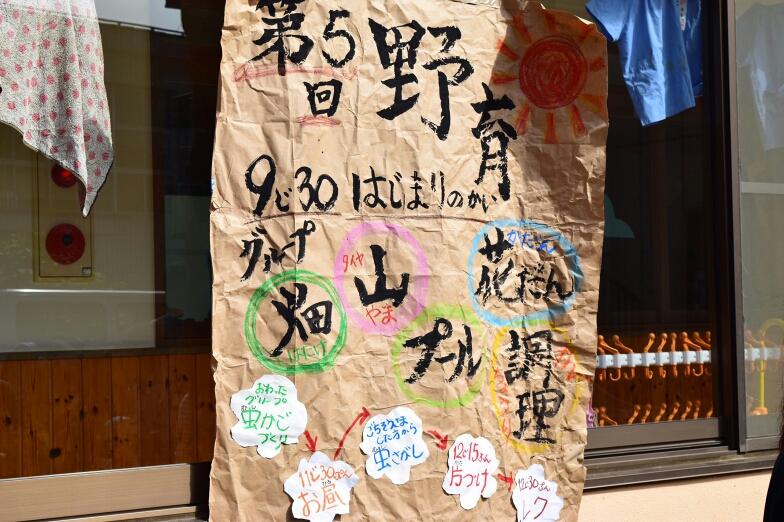 第5回
野育
9じ30 はじまりのかい
グループ
畑
はたけ
タイヤ
山
やま
かだん
花だん
プール
調理
おわった
グループ
虫かご
づくり
11じ30ぷん
お昼
ごちそうさま
した方から
虫さがし
12じ15ふん
片づけ
12じ30ぷん
レク